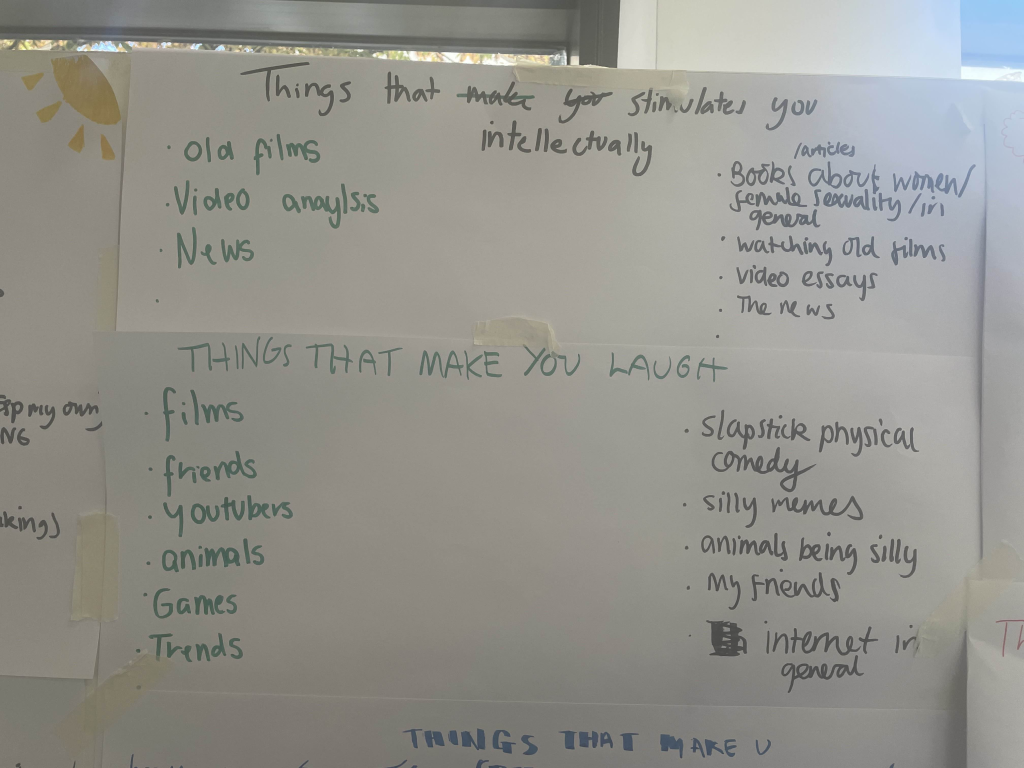 Things that make you stimulates you
intellectually
· old films
· Video anaylsis
· News
·
/articles
· Books about women/
female sexuality/in
general
· watching old films
· video essays
· The news
·
THINGS THAT MAKE YOU LAUGH
· films
· friends
· youtubers
· animals
· Games
· Trends
· slapstick physical
comedy
· silly memes
· animals being silly
· My friends
· internet in
general
my own
THINGS THAT MAKE U